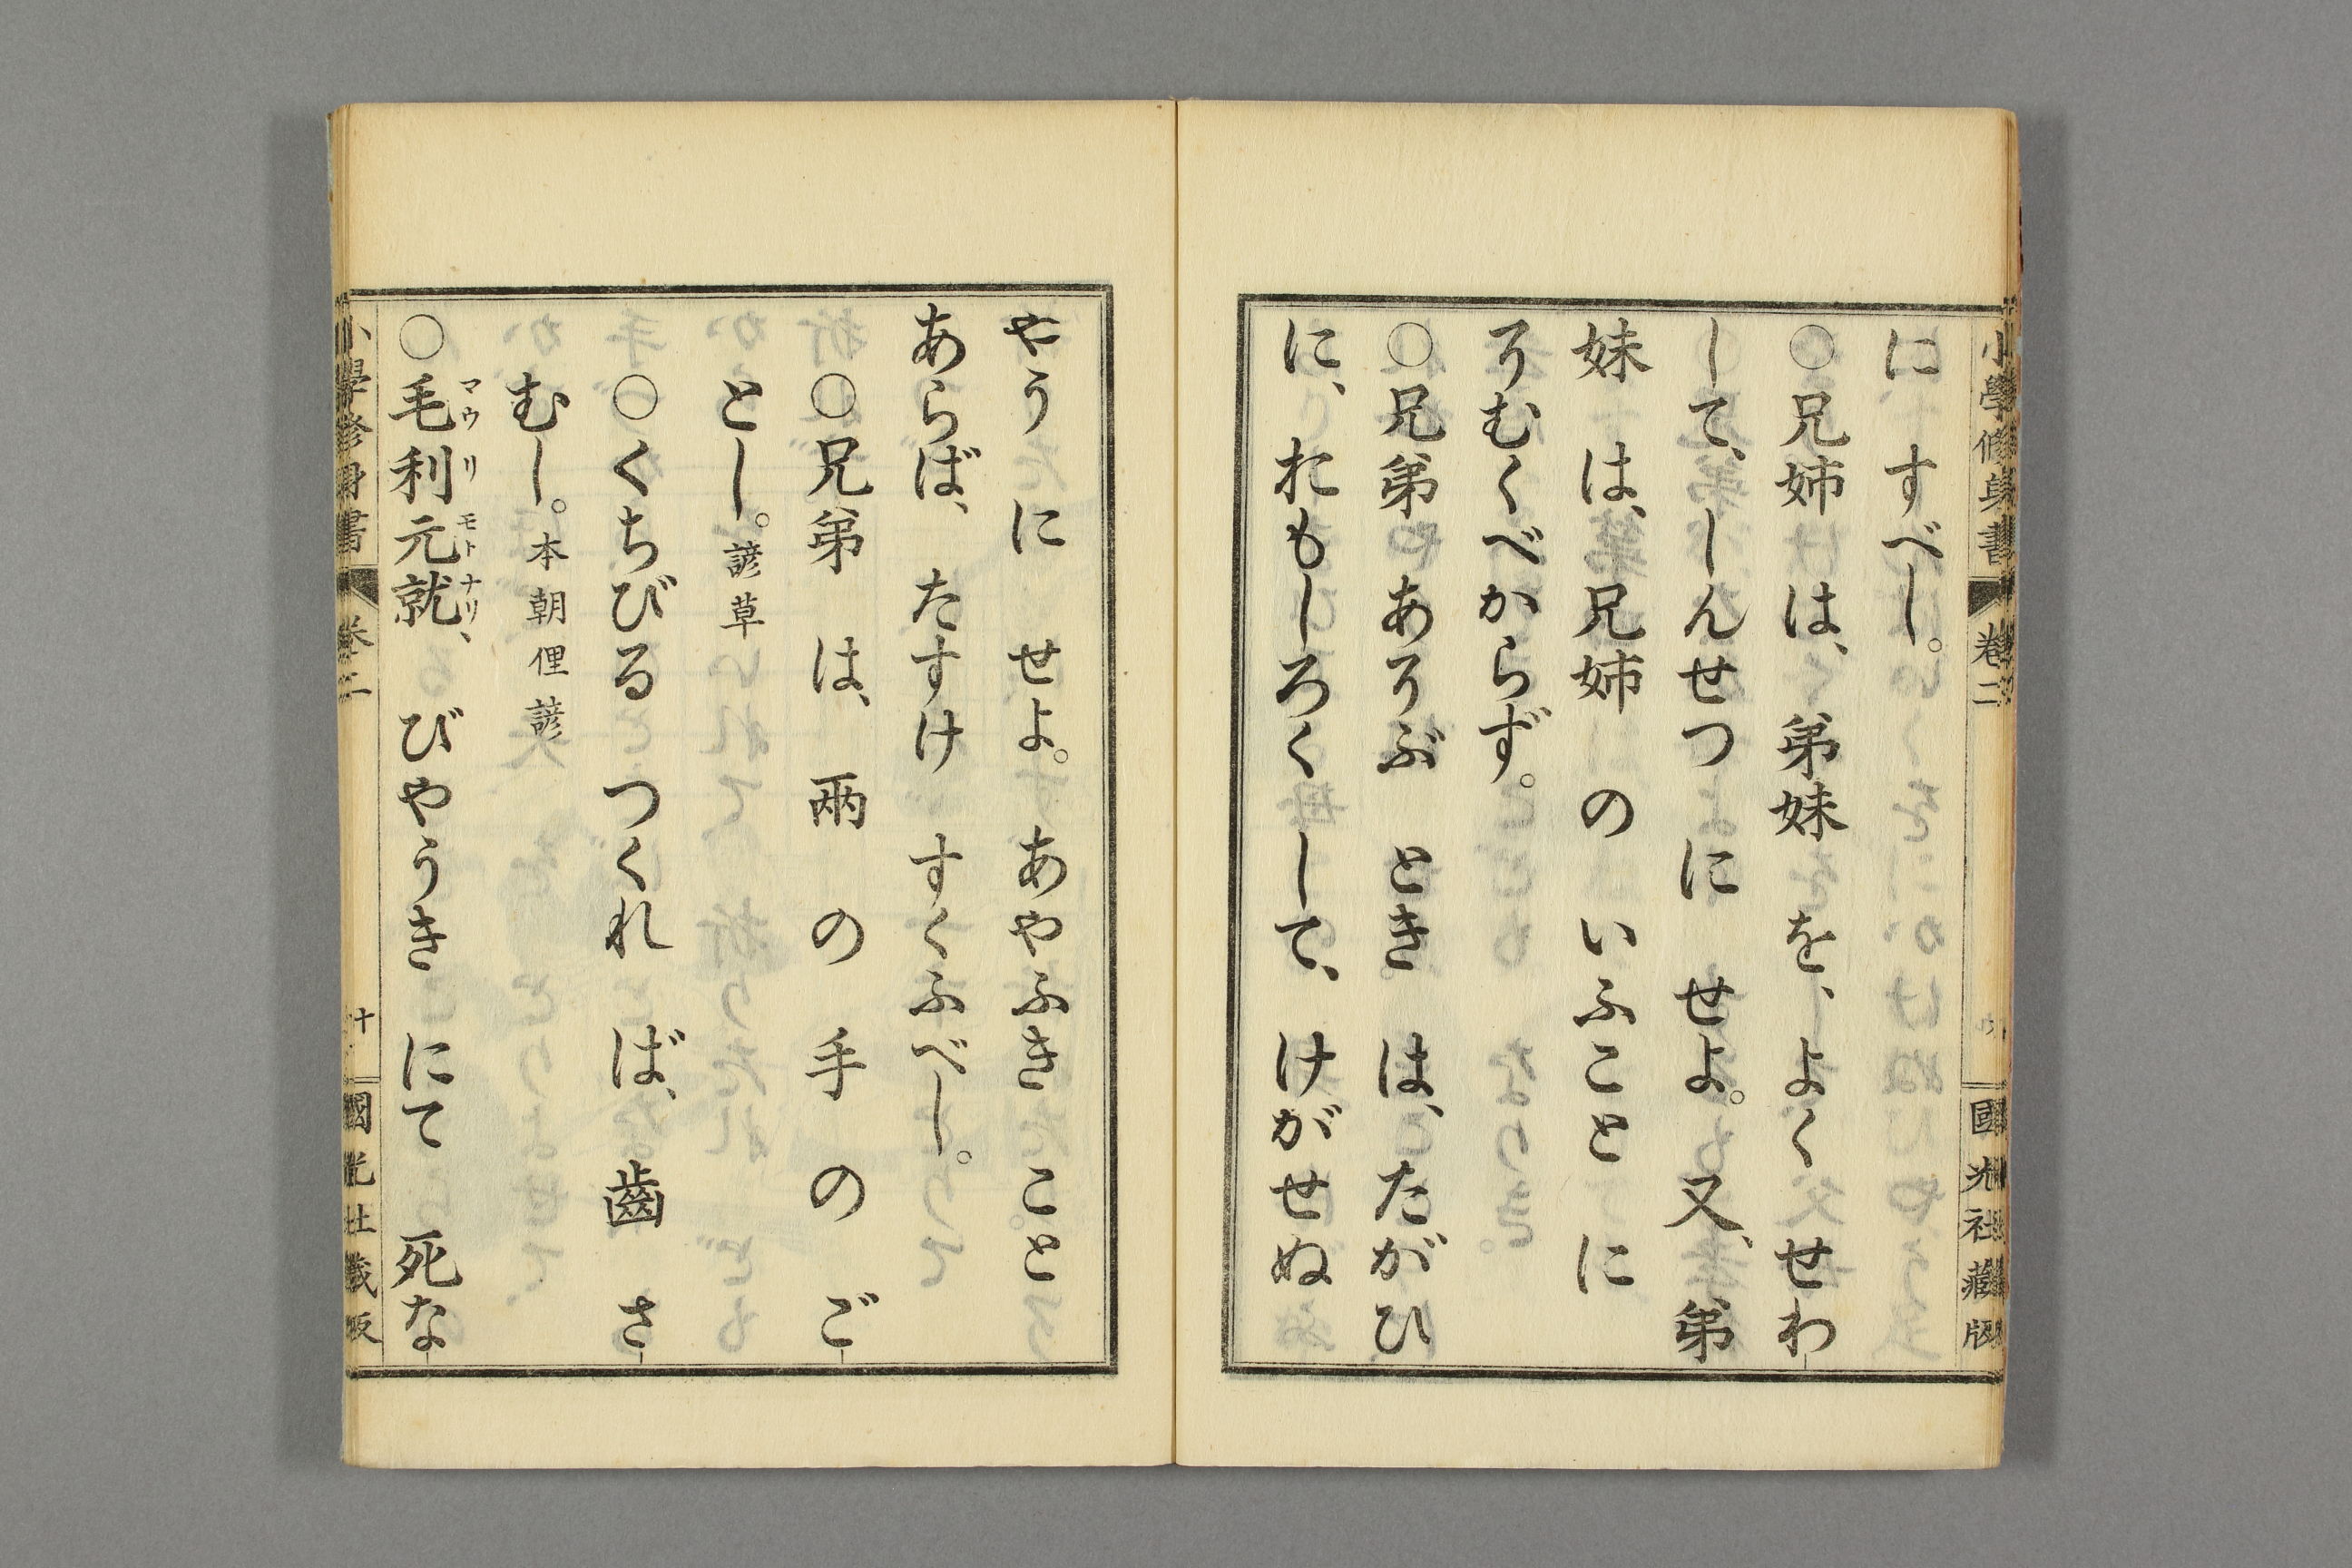 小學修身書 卷二 九 國光社藏版
に、すべし。
○兄姉 は、弟妹 を、よく せわ
して、しんせつ に せよ。又、弟
妹 は、兄姉 の いふこと に
そむくべからず。
○兄弟 あそぶ とき は、たがひ
に、おもしろく して、けがせぬ
やう に せよ。あやふき こと
あらば、たすけ すくふべし。
○兄弟 は、兩 の 手 の ご
とし。諺草
○くちびる つくれ ば、齒 さ
むし。本朝俚諺
○毛利元就、びやうき にて 死な
マウリモトナリ
小學修身書 卷二 十 國光社藏版